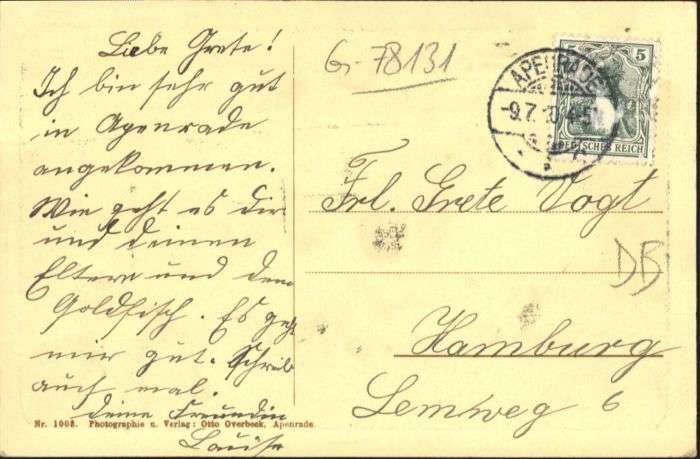 Liebe Grete!
Ich bin sehr gut
in Apenrade
angekommen.
Wie geht es dir
und deinen
Eltern und dem
Goldfisch. Es geht
mir gut. Schreib
auch mal.
deine Freundin
Louise
Nr. 1008. Photographie u. Verlag: Otto Overbeck, Apenrade.
G-78131
5
APENRADE
-9.7.
DEUTSCHES REICH
Frl. Grete Vogt
DB
Hamburg
Lemweg 6